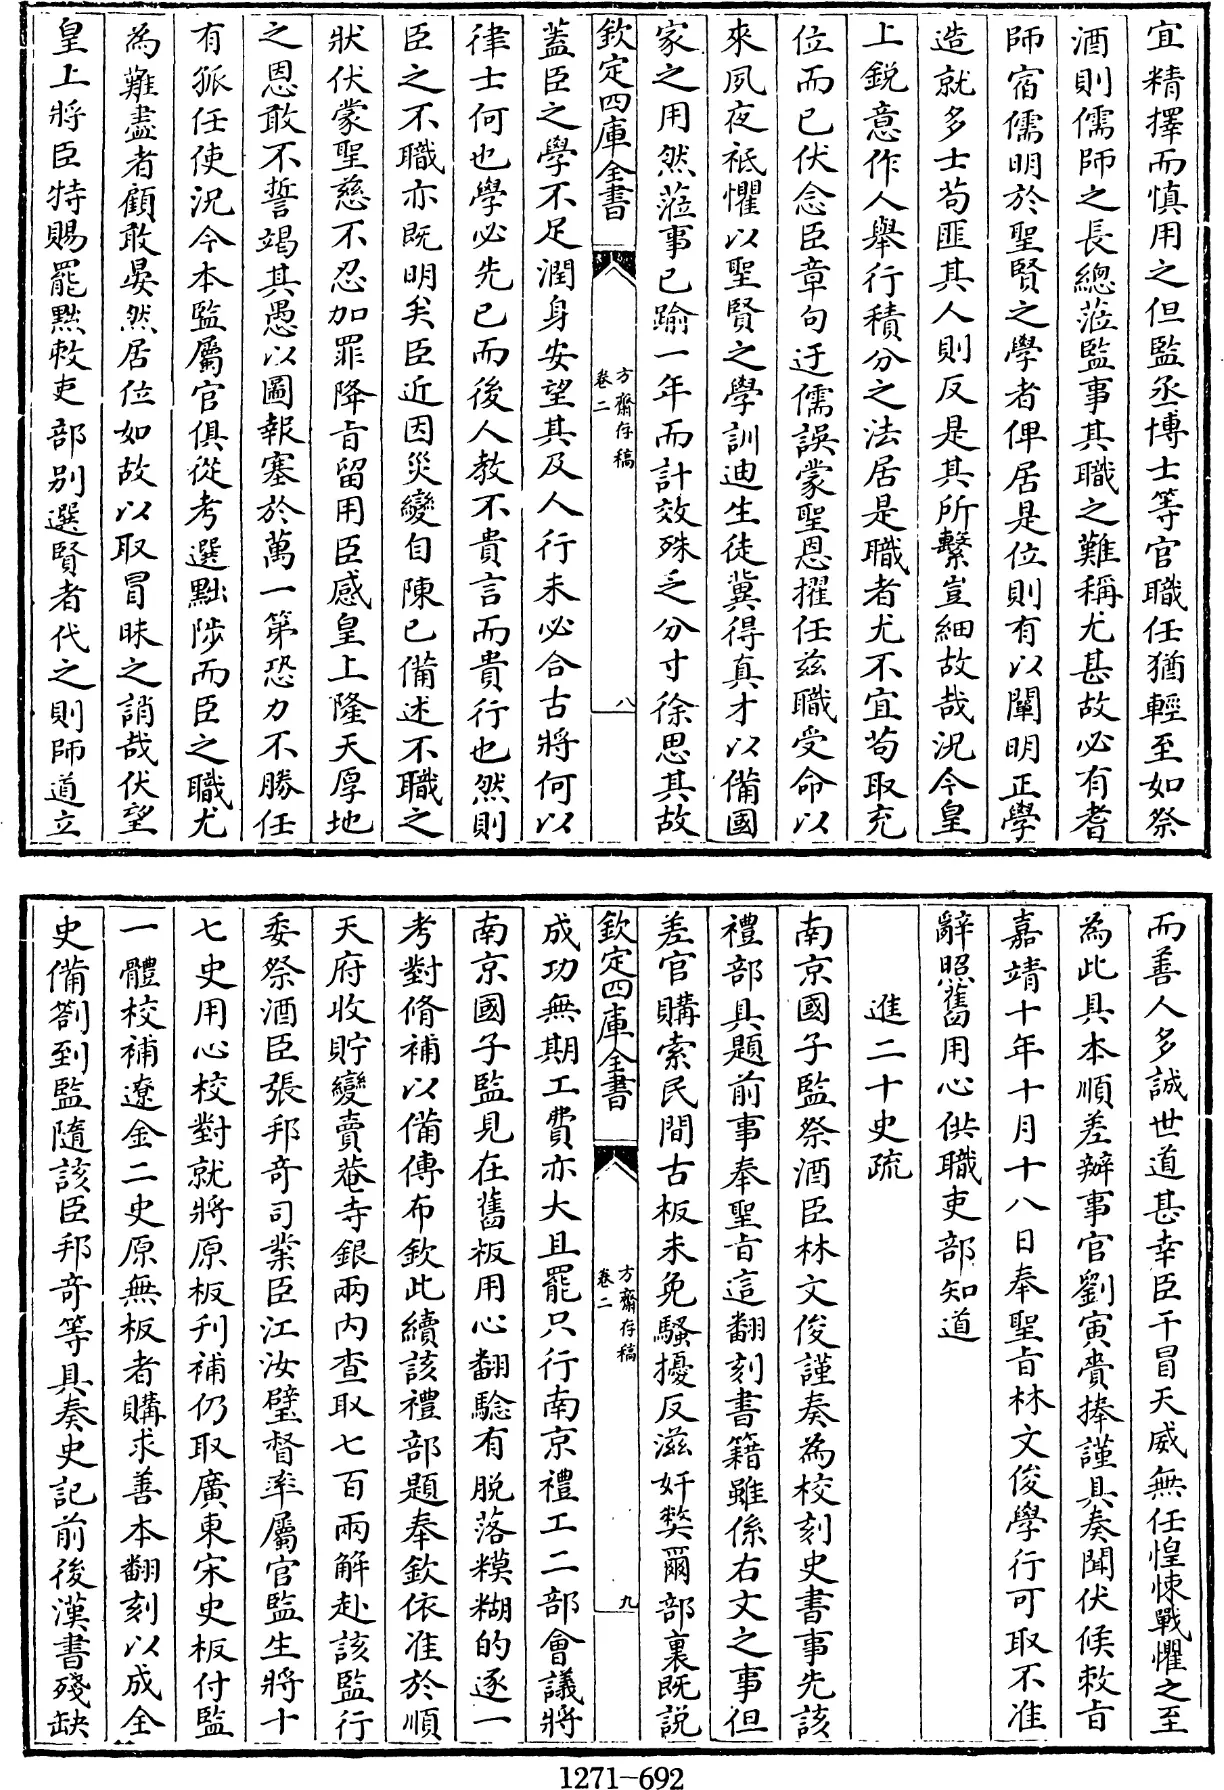 宜精擇而慎用之但監丞博士等官職任猶輕至如祭
酒則儒師之長總蒞監事其職之難稱尤甚故必有耆
師宿儒明於聖賢之學者俾居是位則有以闡明正學
造就多士苟匪其人則反是其所繫豈細故哉況今皇
上鋭意作人舉行積分之法居是職者尤不宜苟取充
位而已伏念臣章句迂儒誤蒙聖恩擢任兹職受命以
來夙夜祗懼以聖賢之學訓迪生徒冀得真才以備國
家之用然蒞事已踰一年而計效殊乏分寸徐思其故
欽定四庫全書
方齋存稿
卷二
八
蓋臣之學不足潤身安望其及人行未必合古將何以
律士何也學必先己而後人教不貴言而貴行也然則
臣之不職亦既明矣臣近因災變自陳已備述不職之
狀伏蒙聖慈不忍加罪降旨留用臣感皇上隆天厚地
之恩敢不誓竭其愚以圖報塞於萬一第恐力不勝任
有孤任使況今本監屬官俱從考選黜陟而臣之職尤
為難盡者顧敢晏然居位如故以取冒昧之誚哉伏望
皇上將臣特賜罷黜敕吏部别選賢者代之則師道立
而善人多誠世道甚幸臣干冒天威無任惶悚戰懼之至
為此具本順差辦事官劉寅賫捧謹具奏聞伏候敕旨
嘉靖十年十月十八日奉聖旨林文俊學行可取不准
辭照舊用心供職吏部知道
進二十史疏
南京國子監祭酒臣林文俊謹奏為校刻史書事先該
禮部具題前事奉聖旨這翻刻書籍雖係右文之事但
差官購索民間古板未免騷擾反滋奸弊爾部裏既説
欽定四庫全書
方齋存稿
卷二
九
成功無期工費亦大且罷只行南京禮工二部會議將
南京國子監見在舊板用心翻騐有脱落糢糊的逐一
考對脩補以備傳布欽此續該禮部題奉欽依准於順
天府收貯變賣菴寺銀兩内查取七百兩解赴該監行
委祭酒臣張邦奇司業臣江汝璧督率屬官監生將十
七史用心校對就將原板刋補仍取廣東宋史板付監
一體校補遼金二史原無板者購求善本翻刻以成全
史備劄到監隨該臣邦奇等具奏史記前後漢書殘缺
1271-692